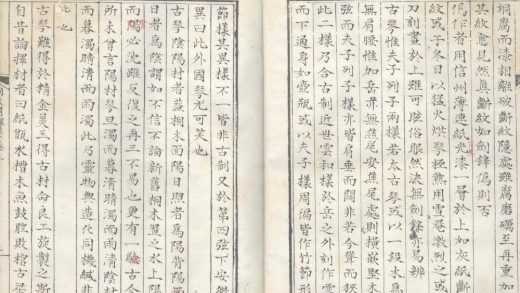 桐腐而漆相離破斷紋隆處雖腐磨礪至再重加
其紋愈見然真斷紋如劍鋒偽則否
偽作者用信州薄連紙光漆一層於上加灰紙斷
紋或于冬日以猛火烘琴極熱用雪罨激烈之或
刀刻畫於上雖可眩俗眼然決無劍鋒亦易辨
古琴惟夫子列子兩樣若太古琴或以一段木為
無肩腰惟加岳無焦尾安焦尾處則橫嵌堅木
此二樣乃合古制近世雲和樣於岳之外刻作雲
弦夫子列子樣亦皆肩垂而闊非若今聳而狹
而下通身如壺瓶或以夫子樣周徧皆作竹節形
節樣其異樣不一皆非古制又於第四弦下安徽
異曰此外國琴尤可笑也
古琴陰陽材者蓋桐木面陽日照者為陽背陽
日者為陰謂如不信不論新舊桐木置之水上陽
而陽必沈雖反復之再三不易也更有一驗古今
所未嘗言陽材琴旦濁而暮清晴濁而雨清陰材
而暮濁晴清而雨濁此乃靈物與造化同機緘非
比也
古琴難得於精金美玉得古材命良工旋製之斯
自昔論擇材者曰紙甑水槽木魚鼓腔敗棺古梁